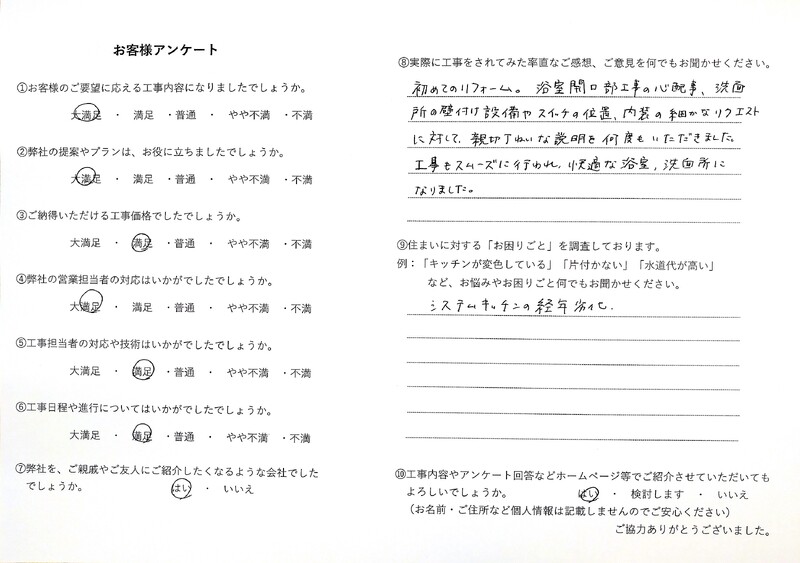 お客様アンケート
①お客様のご要望に応える工事内容になりましたでしょうか。
大満足 ・ 満足 ・普通 ・ やや不満 ・不満
②弊社の提案やプランは、お役に立ちましたでしょうか。
大満足 ・ 満足 ・普通 ・ やや不満 ・不満
③ご納得いただける工事価格でしたでしょうか。
大満足 ・ 満足 ・普通 ・ やや不満 ・不満
④弊社の営業担当者の対応はいかがでしたでしょうか。
大満足 ・ 満足 ・普通 ・ やや不満 ・不満
⑤工事担当者の対応や技術はいかがでしたでしょうか。
大満足 ・ 満足 ・普通 ・ やや不満 ・不満
⑥工事日程や進行についてはいかがでしたでしょうか。
大満足 ・ 満足 ・普通 ・ やや不満 ・不満
⑦弊社を、ご親戚やご友人にご紹介したくなるような会社でした
でしょうか。 はい ・ いいえ
⑧実際に工事をされてみた率直なご感想、ご意見を何でもお聞かせください。
初めてのリフォーム。浴室開口部工事の心配事、洗面
所の壁付け設備やスイッチの位置、内装の細かなリクエスト
に対して、親切丁ねいな説明を何度もいただきました。
工事もスムーズに行われ、快適な浴室、洗面所に
なりました。
⑨住まいに対する「お困りごと」を調査しております。
例：「キッチンが変色している」「片付かない」「水道代が高い」
など、お悩みやお困りごと何でもお聞かせください。
システムキッチンの経年劣化.
⑩工事内容やアンケート回答などホームページ等でご紹介させていただいても
よろしいでしょうか。 はい ・ 検討します ・ いいえ
（お名前・ご住所など個人情報は記載しませんのでご安心ください）
ご協力ありがとうございました。